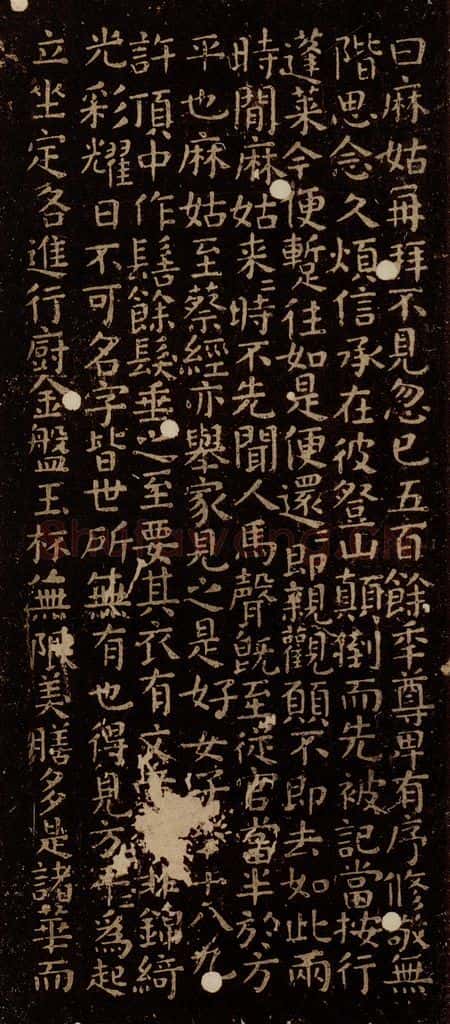 曰麻姑再拜不見忽已五百餘年尊卑有序修敬無
階思念久煩信承在彼登山顛倒而先被記當按行
蓬萊今便蹔往如是便還即親觀願不即去如此兩
時間麻姑来〻時不先聞人馬聲既至從官當半於方
平也麻姑至蔡經亦舉家見之是好女子十八九
許頂中作髻餘髮垂之至要其衣有文非錦綺
光彩耀日不可名字皆世所無有也得見方平為起
立坐定各進行廚金盤玉杯無限美膳多是諸華而